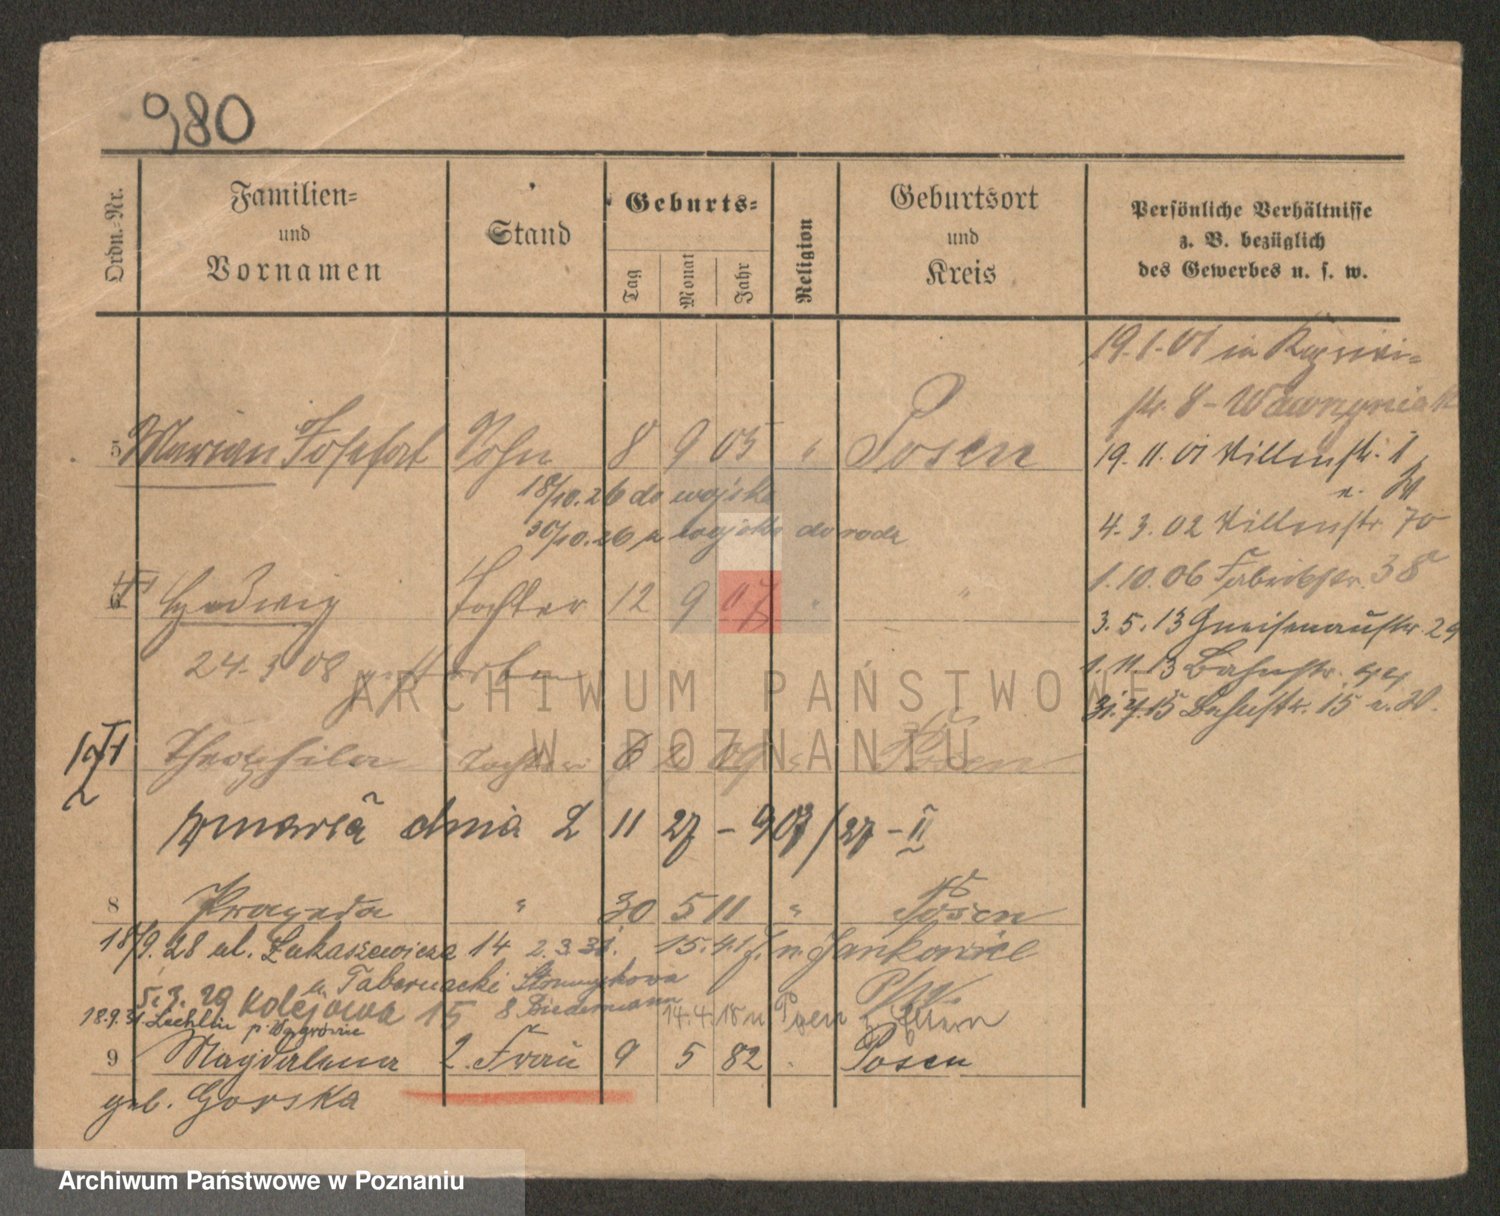 980
Ordn.-Nr.
Familien-
und
Vornamen
Stand
Geburts-
Tag
Monat
Jahr
Religion
Geburtsort
und
Kreis
Persönliche Verhältnisse
z. B. bezüglich
des Gewerbes u. s. w.
19.1.01 in
str. 8 - Wawrzyniak
19.11.01
4.3.02 70
1.10.06 Fabrikstr. 38
3.5.13 Gneisenaustr. 29
1.11.13 Bahnstr.
31.7.15 Bahnstr. 15 u. W.
5 Marian Josefat Sohn 8 9 05 " Posen
18/10.26 do wojska
30/10.26 z wojska do
6 Hedwig Tochter 12 9 07 " "
24.3 08 gestorben
Theophila Tochter 6 2 09 " Posen
zmarła dnia 2 11 27 - 907/27 - II
8 Praxeda " 30 5 11 " Posen
18/9.28 ul. Łukaszewicza 14 2.3.31. 15.4.1 n. Jankowice
u. Tabernacki
5.3.29 Kolejowa 15 8 Biedermann 14.4.18 n Posen z Eltern
18.9.31 Lechlin p. Wągrowiec
9 Magdalena 2. Frau 9 5 82 " Posen
geb. Gorska
ARCHIWUM PAŃSTWOWE
W POZNANIU
Archiwum Państwowe w Poznaniu